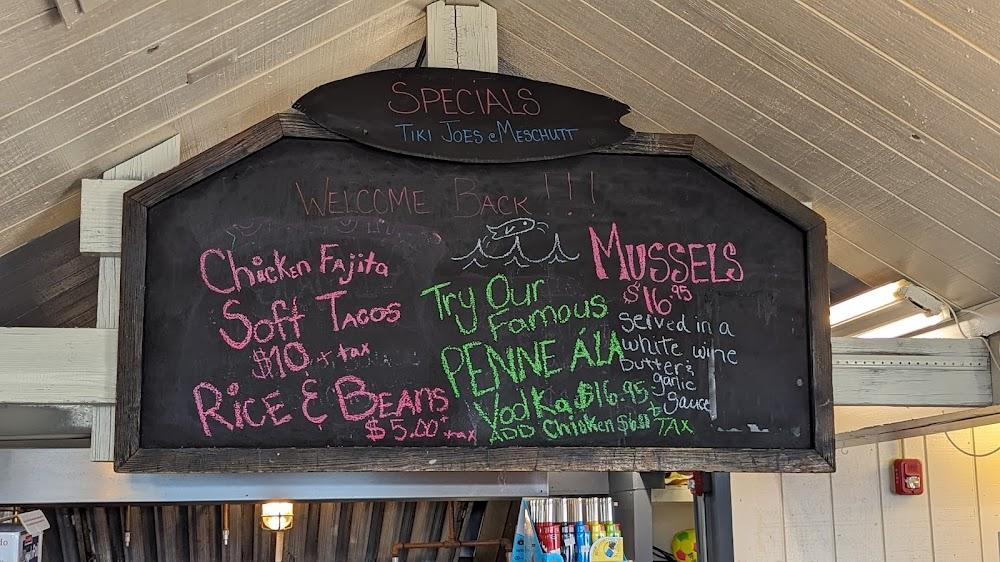 SPECIALS
TIKI JOES @ MESCHUTT
WELCOME BACK!!!
Chicken Fajita
Soft Tacos
$10 + tax
Rice & Beans
$5.00 + tax
Try Our
Famous
PENNE ÁLA
Vodka $16.95
ADD Chicken
TAX
MUSSELS
$16.95
served in a
white wine
butter &
garlic
sauce